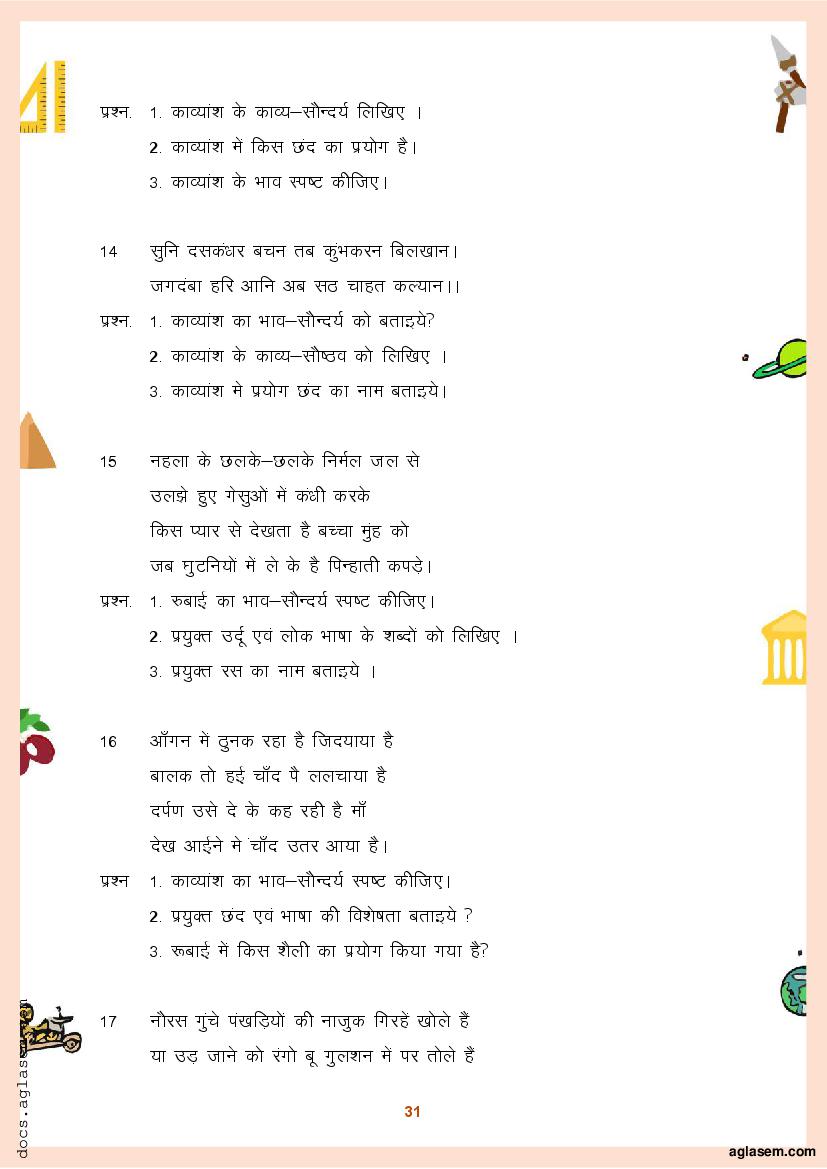 प्रश्न. 1. काव्यांश के काव्य–सौन्दर्य लिखिए ।
2. काव्यांश में किस छंद का प्रयोग है।
3. काव्यांश के भाव स्पष्ट कीजिए।
14 सुनि दसकंधर बचन तब कुंभकरन बिलखान।
जगदंबा हरि आनि अब सठ चाहत कल्यान।।
प्रश्न. 1. काव्यांश का भाव–सौन्दर्य को बताइये?
2. काव्यांश के काव्य–सौष्ठव को लिखिए ।
3. काव्यांश मे प्रयोग छंद का नाम बताइये।
15 नहला के छलके–छलके निर्मल जल से
उलझे हुए गेसुओं में कंधी करके
किस प्यार से देखता है बच्चा मुंह को
जब घुटनियों में ले के है पिन्हाती कपड़े।
प्रश्न. 1. रुबाई का भाव–सौन्दर्य स्पष्ट कीजिए।
2. प्रयुक्त उर्दू एवं लोक भाषा के शब्दों को लिखिए ।
3. प्रयुक्त रस का नाम बताइये ।
16 आँगन में ठुनक रहा है जिदयाया है
बालक तो हई चाँद पै ललचाया है
दर्पण उसे दे के कह रही है माँ
देख आईने मे चाँद उतर आया है।
प्रश्न 1. काव्यांश का भाव–सौन्दर्य स्पष्ट कीजिए।
2. प्रयुक्त छंद एवं भाषा की विशेषता बताइये ?
3. रूबाई में किस शैली का प्रयोग किया गया है?
17 नौरस गुंचे पंखड़ियों की नाजुक गिरहें खोले हैं
या उड़ जाने को रंगो बू गुलशन में पर तोले हैं
31
docs.aglasem
aglasem.com